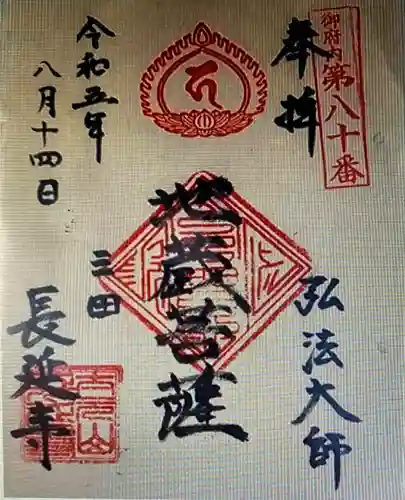 御府内第八十番
奉拝
弘法大師
地蔵菩薩
令和五年
八月十四日
三田
長延寺